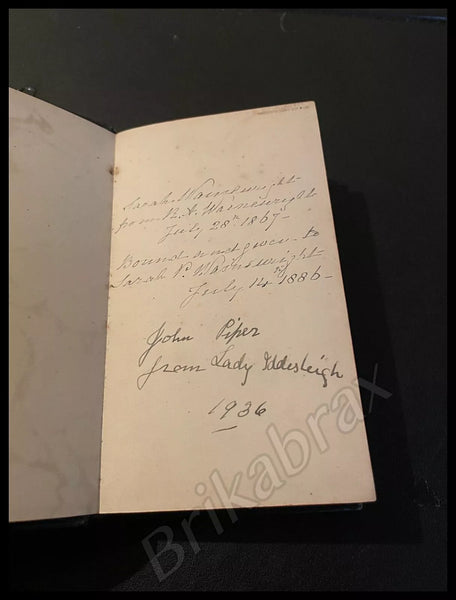 Sarah Wainewright
from R. A. Wainewright
July 28th 1867-
Bound and given to
Sarah P. Wainewright
July 14th 1886-
John Piper
from Lady Iddesleigh
1936
Brikabrax